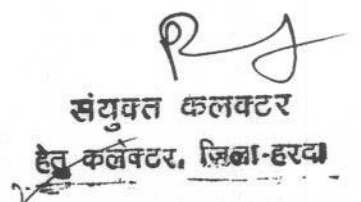 संयुक्त कलक्टर
हेतु कलक्टर, जिला-हरदा